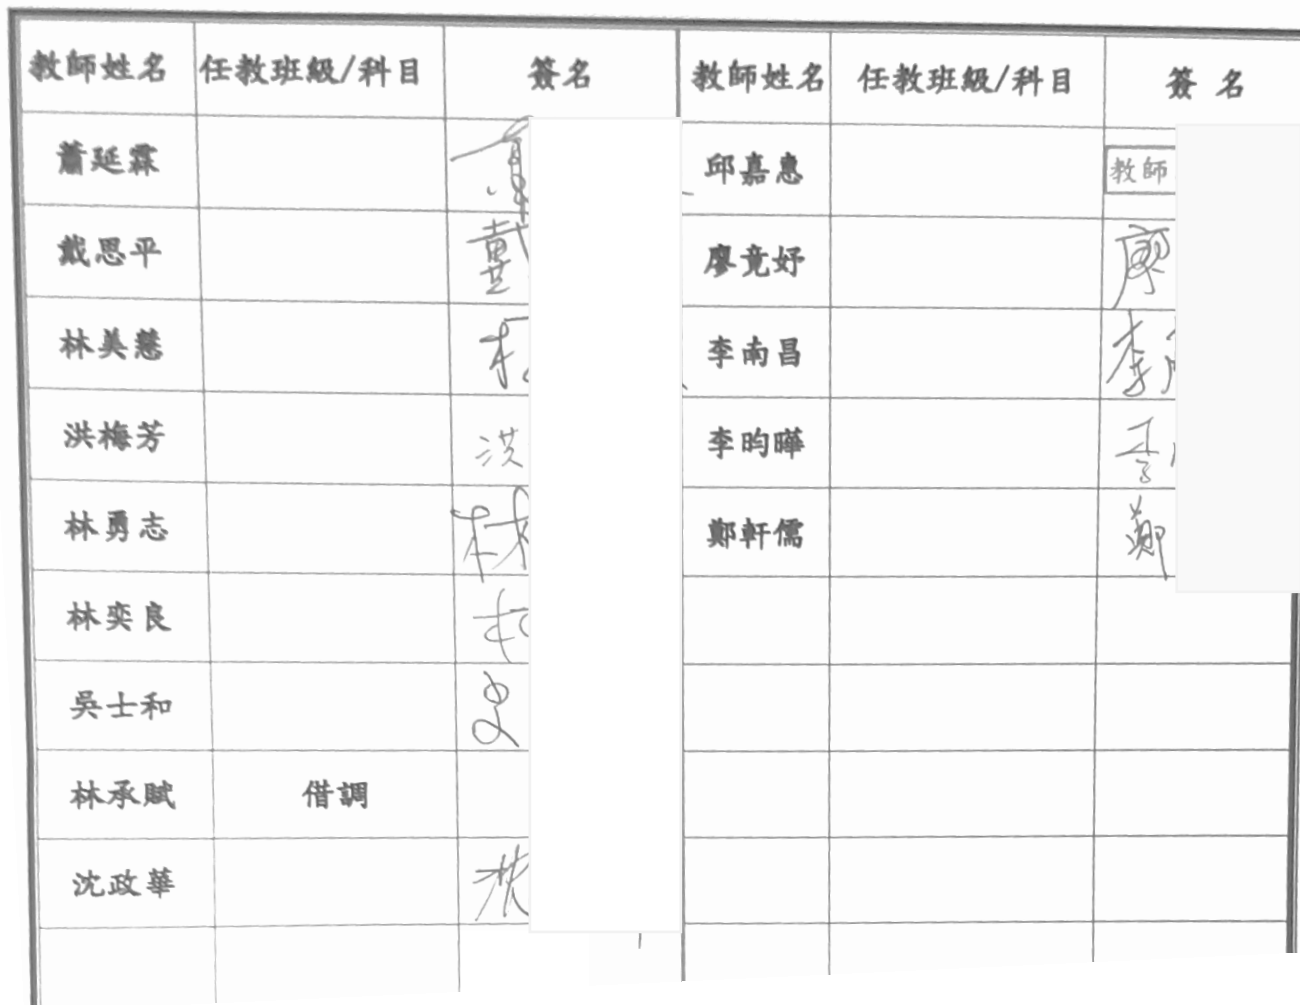 教師姓名 任教班級/科目 簽名 教師姓名 任教班級/科目 簽 名
蕭延霖 邱嘉惠 教師
戴思平 戴 廖竟妤 廖
林美慧 李南昌 李
洪梅芳 洪 李昀曄 李
林勇志 林 鄭軒儒 鄭
林奕良
吳士和 吳
林承賦 借調
沈政華